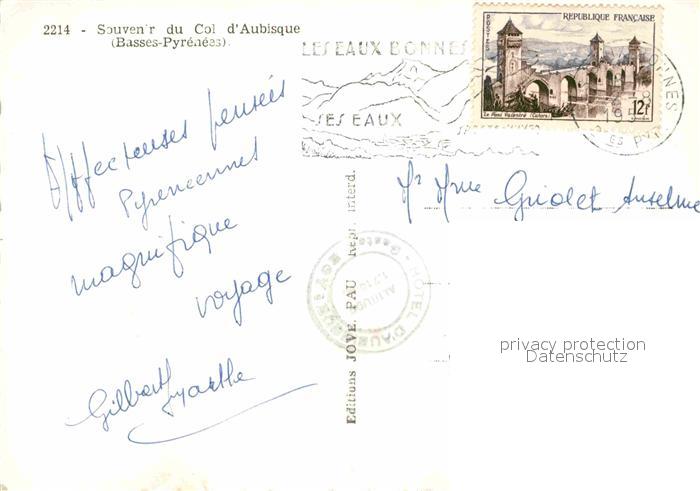 2214 - Souvenir du Col d'Aubisque
(Basses-Pyrénées).
Affectueuses pensées
Pyreneennes
magnifique
voyage
Gilbert
LES EAUX BONNES
SES EAUX
POSTES
REPUBLIQUE FRANÇAISE
Le Pont Valentré (Cahors)
12F
Mr Mme Griolet Anselme
HOTEL D'AUBISQUE
ALTITUDE
Editions JOVE, PAU Repr. interd.
privacy protection
Datenschutz